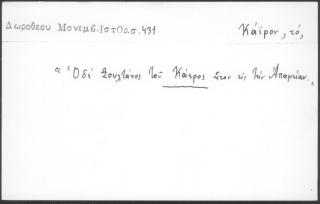 Δωροθεου Μονεμβ.Ιστορ.σ.431
Κάϊρον, τό,
"Ὁδέ Σουλτάνος τοῦ Κάϊρος ἦτον εἰς τήν Ἀπαμείαν"